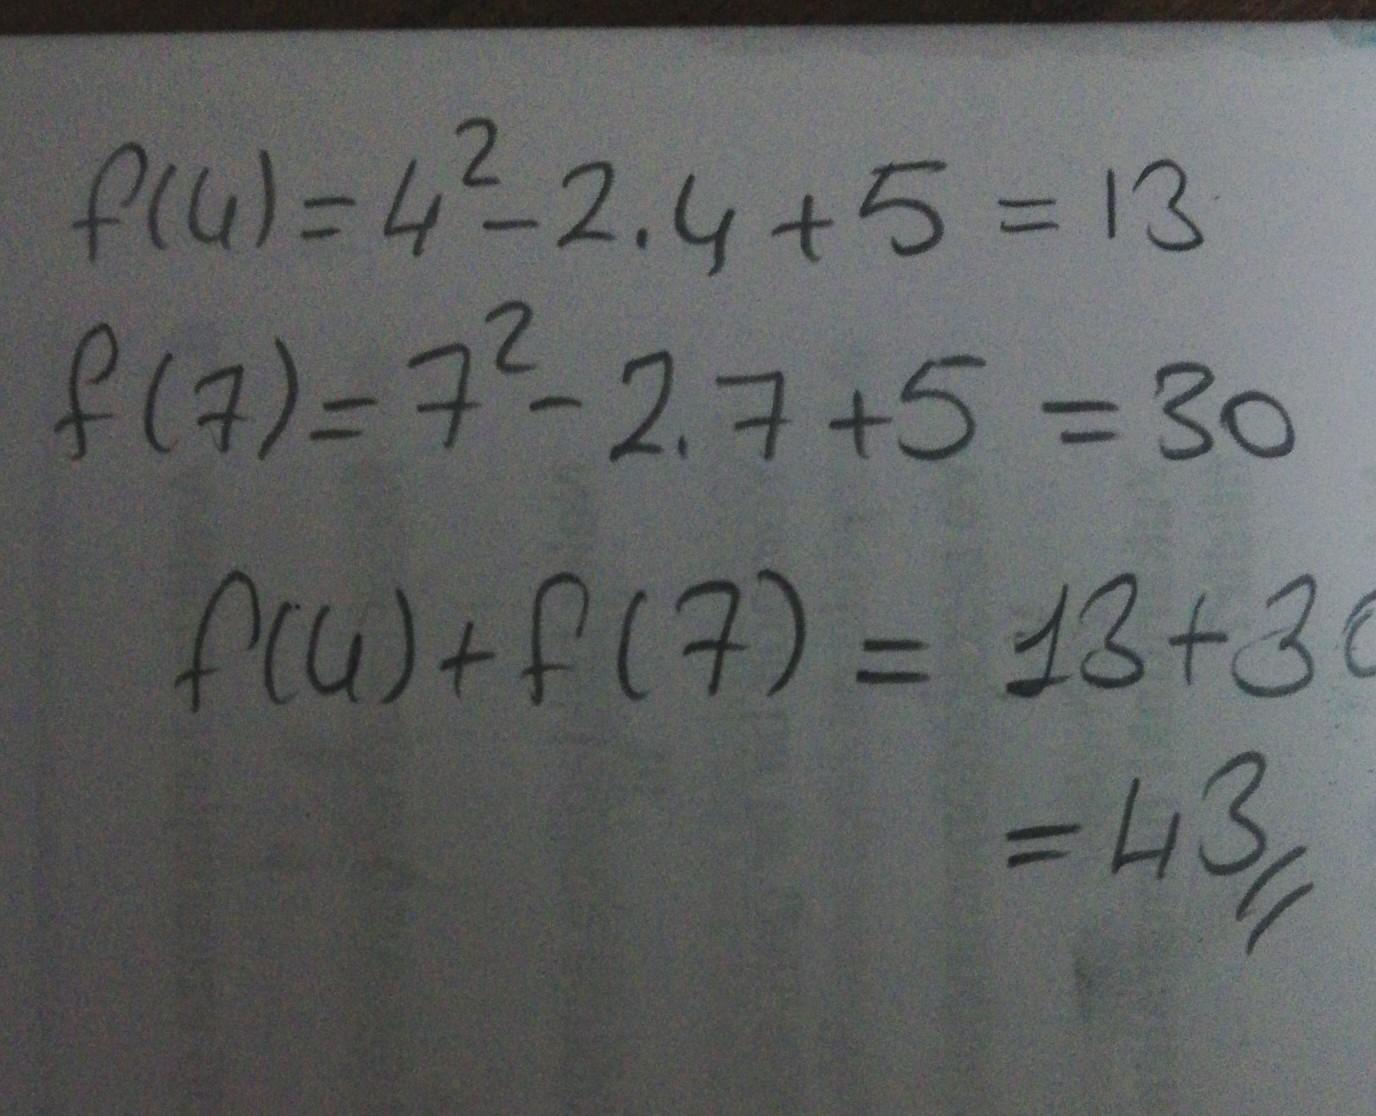 f(4) = 4² - 2.4 + 5 = 13
f(7) = 7² - 2.7 + 5 = 30
f(4) + f(7) = 13 + 30
= 43